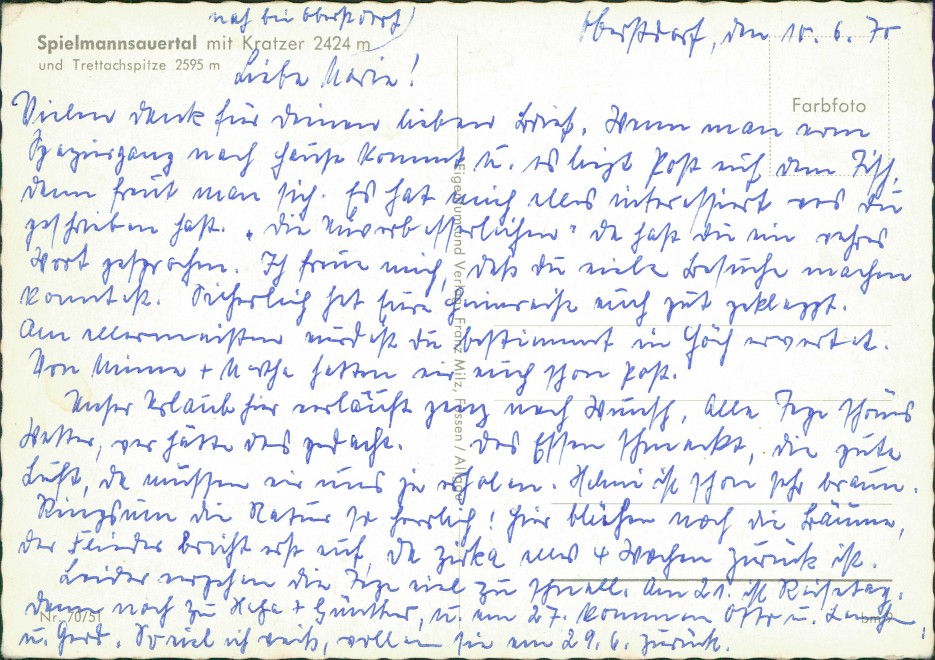 nach bei Oberstdorf)
Oberstdorf, den 10. 6. 70
Spielmannsauertal mit Kratzer 2424 m
und Trettachspitze 2595 m
Liebe Marie!
Farbfoto
Vielen Dank für Deinen lieben Brief. Wenn man vom
Spaziergang nach Hause kommt u. es liegt Post auf dem Tisch,
dann freut man sich. Es hat mich alles interessiert was Du
geschrieben hast. „Die Unverbesserlichen" da hast Du ein wahres
Wort gesprochen. Ich freue mich, daß Du viele Besuche machen
konntest. Sicherlich hat Eure Heimreise auch gut geklappt.
Am allermeisten wirdest Du bestimmt in erwartet.
Von Minna + Martha hatten wir auch schon Post.
Unser Urlaub hier verläuft ganz nach Wunsch, alle Tage schönes
Wetter, wer hätte das gedacht. Das Essen schmeckt, die gute
Luft, da müssen wir uns ja erholen. Helmi ist schon sehr braun.
Ringsum die Natur so herrlich! Hier blühen noch die Bäume,
der Flieder bricht erst auf, da zirka alles 4 Wochen zurück ist.
Leider vergehen die Tage viel zu schnell. Am 21. ist Reisetag.
Dann noch zu + Günther, u. am 27. kommen Otto u.
u. Gerd. Soviel ich weiß, wollen sie am 29.6. zurück.
Eigentum und Verlag Franz Milz, Füssen / Allgäu
Nr. 70/51